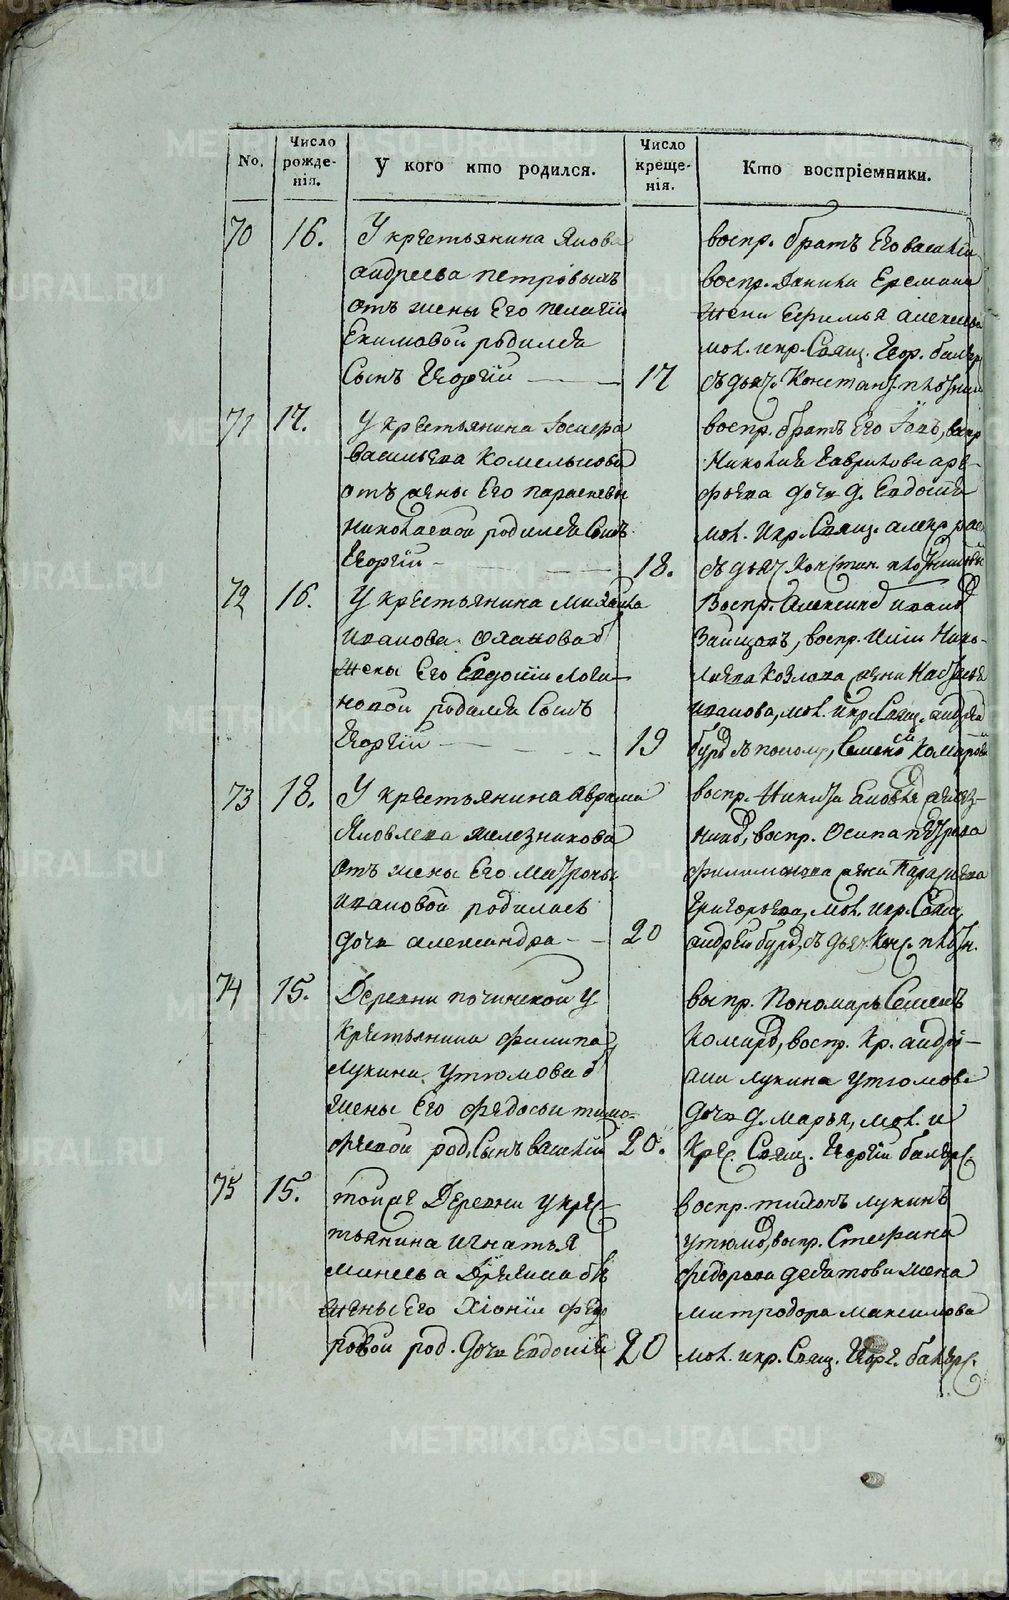 No.
Число рожде-нія.
У кого кто родился.
Число креще-нія.
Кто воспріемники.
70 16. У крестьянина Якова
андреева петровыхъ
отъ жены Его пелагіи
Екимовой родился
Сынъ Георгій 17
воспр. братъ Его василій
воспр. данила Еремина
жена Ефимья алексеева
мол. и кр. Свящ. Геор.
съ дьяч. Констант.
71 17. У крестьянина
васильева
отъ жены Его параскевы
николаевой родился Сынъ
Георгій 18.
воспр. братъ Его
Николая Гаврилова аре-
фьева дочь д. Евдокія
мол. и кр. Свящ. алекс.
съ дьяч. Констан.
72 16. У крестьянина Михайла
иванова
жены Его Евдокіи логи-
новой родился Сынъ
Георгій 19
Воспр. Александ иванов
Зайцовъ, воспр. Нико-
лаева козлова жена Настасья
иванова, мол. и кр. Свящ. андрей
съ поном. Семеном Комаров
73 18. У крестьянина Аврама
Яковлева железникова
Отъ жены Его Матроны
ивановой родилась
дочь александра 20
воспр. Никита желез-
ников, воспр. Осипа петрова
филимонова жена Парасковья
григорьева, мол. и кр. Свящ.
андрей съ дьяч. Конс.
74 15. Деревни починской у
крестьянина филипа
лукина утюмова
жены Его федосьи тимо-
феевой род. Сынъ василій 20.
воспр. Пономарь Семенъ
Комаров, воспр. Кр. андре-
яна лукина утюмова
дочь д. марья, мол. и
Крес. Свящ. Георгій
75 15. той же Деревни у крес-
тьянина игнатья
минеева
жены Его Хіоніи федо
ровой род. дочь Евдокія 20
воспр. тихонъ лукинъ
утюмов, воспр. Стефана
федорова девятова жена
митродора максимова
мол. и кр. Свящ. Геор.
METRIKI.GASO-URAL.RU